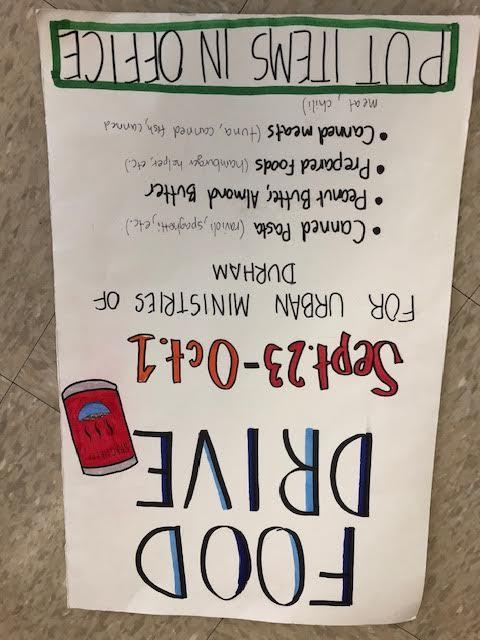 FOOD
DRIVE
SPAGHETTI
Sept.23-Oct.1
FOR URBAN MINISTRIES OF
DURHAM
• Canned Pasta (ravioli, spaghetti, etc.)
• Peanut Butter, Almond Butter
• Prepared Foods (hamburger helper, etc.)
• Canned meats (tuna, canned fish, canned
meat, chili)
PUT ITEMS IN OFFICE